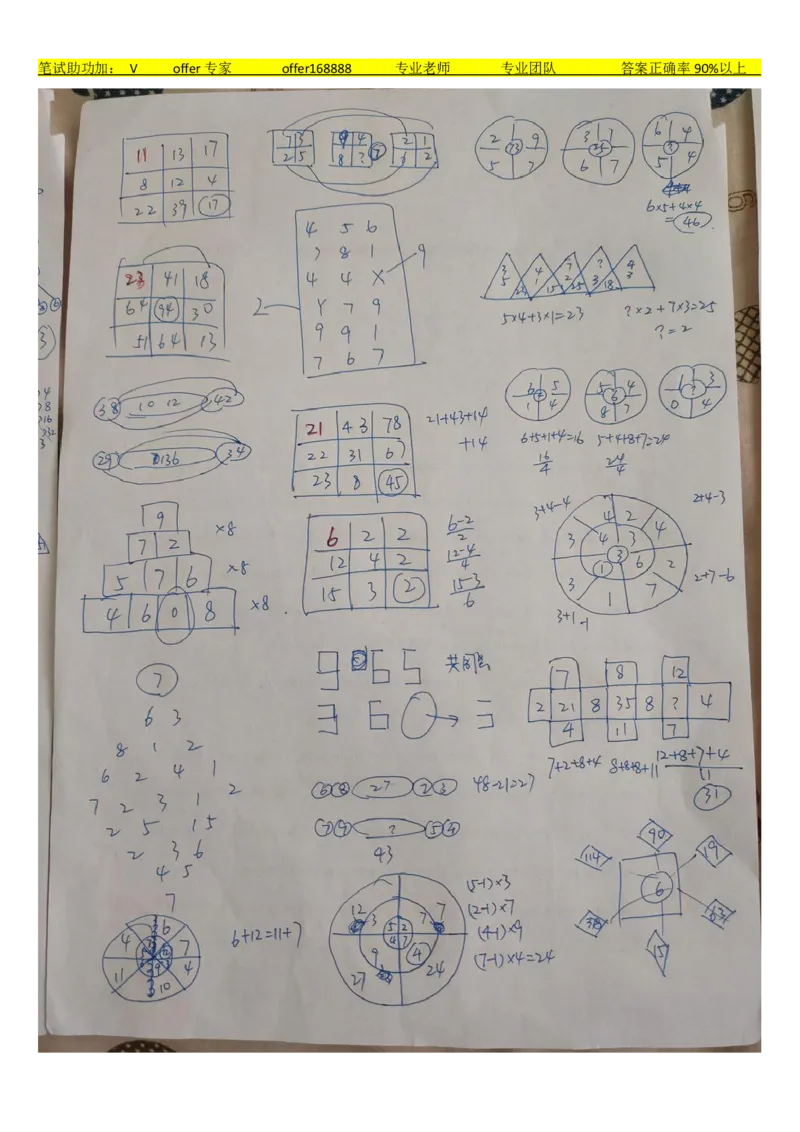 笔试助功加： V offer 专家 offer168888 专业老师 专业团队 答案正确率 90%以上
11 13 17
8 12 4
22 39 17
7 3
2 5
9 4
8 ?
7
2 1
3 2
2 9
73
5 7
3 7
24
6 7
6 4
5 4
6×5+4×4
=46
4 5 6
7 8 1
4 4 X 9
2 Y 7 9
9 9 1
7 6 7
23 41 18
64 94 30
51 64 13
5×4+3×1=23
?×2+7×3=25
?=2
38 10 12 42
29 34
6 5
1 4
5 4
6
8 7
6 ? 3
0 4
6+5+1+4=16 5+4+8+7=24
16
4
24
4
21 43 78
22 31 67
23 8 45
21+43+14
+14
9
7 2 ×8
5 7 6 ×8
4 6 0 8 ×8
6 2 2
12 4 2
15 3 2
6-2
2
12-4
4
15-3
6
3+4-4
2+4-3
4 2
3 4 3 4
3
1 6 2
3 1 7
2+7-6
3+1-1
7
6 3
8 1 2
6 2 4 1
7 2 3 1 2
2 5 1 5
2 3 6
4 5
7
9 6 5
3 6
7 8 12
2 21 8 35 8 ? 4
4 11 7
7+2+8+4 8+8+8+11
12+8+7+4
11
31
6 8 27 2 3 48-21=27
7 9 ? 5 4
43
90
114 19
6
38 63
15
6+12=11+7
4 7
11 4
10
12 3 7 7
5 2
4 7
9 4
27 24
(5-1)×3
(2-1)×7
(4-1)×9
(7-1)×4=24